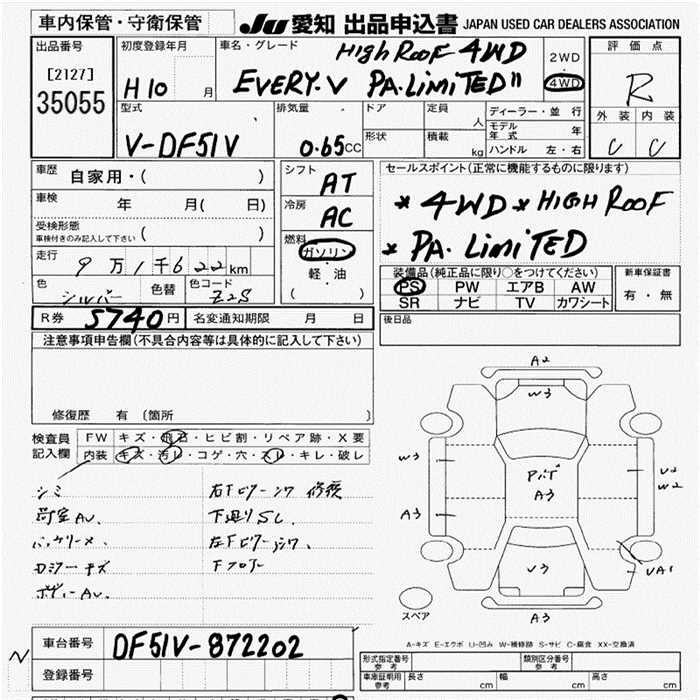 車内保管・守衛保管 JU 愛知 出品申込書 JAPAN USED CAR DEALERS ASSOCIATION
出品番号 初度登録年月 車名・グレード HIGH ROOF 4WD 2WD 評価点
[2127] H10 月 EVERY.V PA.LIMITED" 4WD R
35055 型式 排気量 ドア 定員 人 ディーラー・並行 外装 内装
V-DF51V 0.65CC 形状 積載 kg モデル年式 年 C C
ハンドル 左・右
車歴 自家用・( ) シフト AT セールスポイント(正常に機能するものに限ります)
車検 年 月( 日) 冷房 AC * 4WD * HIGH ROOF
受検形態 ( ) * PA. LIMITED
車検付きのみ記入して下さい 燃料 ガソリン
走行 9万1千622km 軽・油 装備品(純正品に限り○をつけてください) 新車保証書
色 シルバー 色替 色コード Z2S ( ) PS PW エアB AW 有・無
SR ナビ TV カワシート
R券 5740円 名変通知期限 月 日 後日品
注意事項申告欄(不具合内容等は具体的に記入して下さい)
修復歴 有 〔箇所 〕
検査員 FW キズ・飛石・ヒビ割・リペア跡・X要
記入欄 内装 キズ・汚レ・コゲ・穴・スレ・キレ・破レ
シミ 修復
荷室AU.
下廻りSC.
A2
W3
W3 U2
W2
A3
A3
UA1
U3
A3
スペア
A-キズ E-エクボ U-凹み W-補修跡 S-サビ C-腐食 XX-交換済
車台番号 DF51V-872202
登録番号
形式指定番号 参考 類別区分番号 参考
車庫証明用 参考 長さ cm 幅 cm 高さ cm